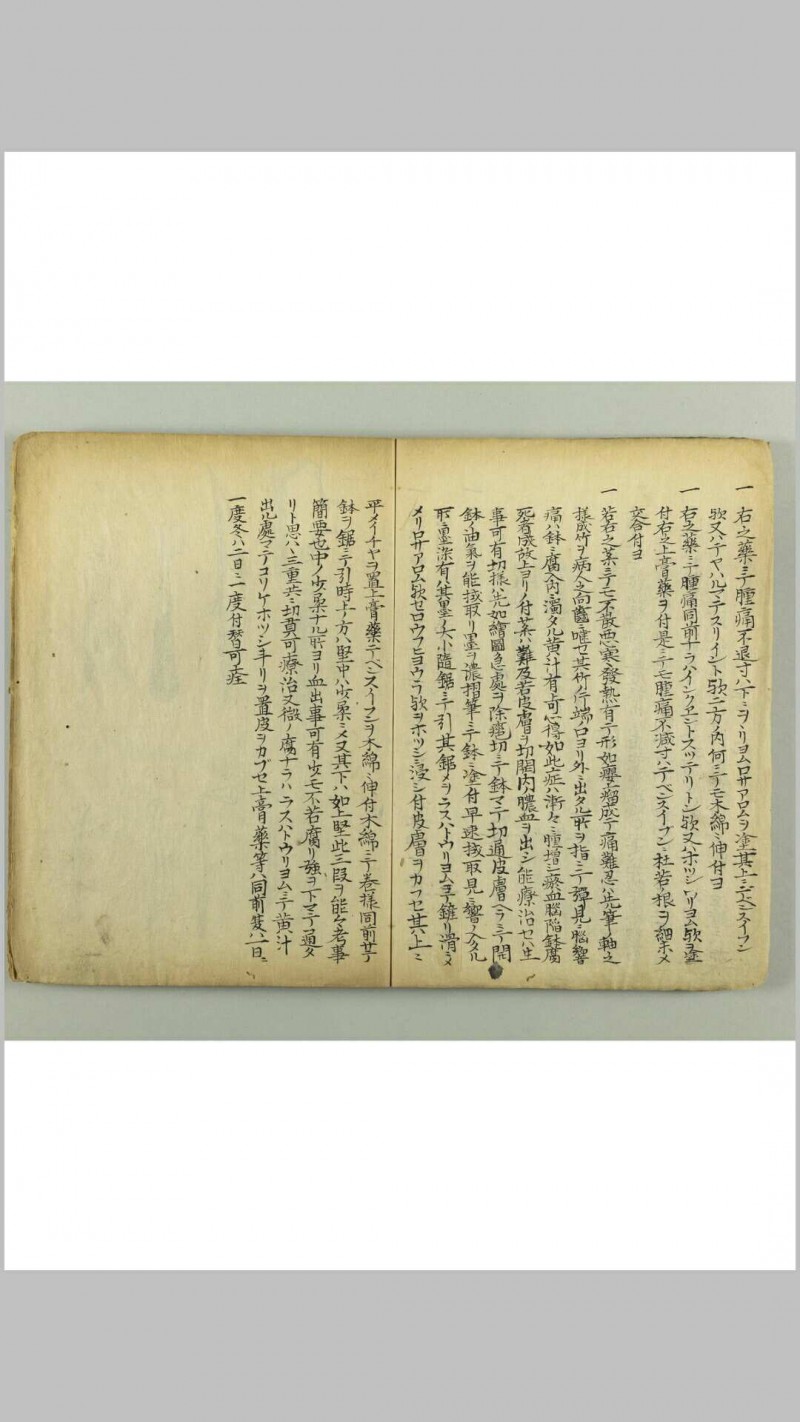 一 右之藥ニテ腫痛不退寸ハ下ミヲヽリヨムロサアロムヲ塗其上ニデヘンスイフン
欤又ハテヤハルマテスリイント欤二方ノ内何ニテモ木綿ニ伸付ヨ
一 右之藥ニテ腫痛同前ナラハインクエントスツテリトン欤又ハホツシ ヲリヨム欤ヲ塗
付右之上膏藥ヲ付是ニテモ腫痛不减寸ハテヘンスイブンニ杜若根ヲ細末メ
交合付ヨ
一 若右之薬ニテモ不散悪寒發熱有テ形如癭瘤成テ痛難忍ハ先筆ノ軸之
様成竹ヲ病人之向齒ニ唯セ其竹ノ片端口ヨリ外ニ出タル所ヲ指ニテ彈見ニ脳響
痛ハ鉢ニ腐入内ニ濁タル黄汁有ト可心得如此症ハ漸々ニ腫增シ瘀血脳陥鉢腐
死者成故上ヨリノ付薬ハ難及若皮膚ヲ切開内膿血ヲ出シ能療治セハ生
事可有切様ハ先如繪圖急處ヲ除疱切ニテ鉢マテ切通皮膚ヘラニテ開
鉢ノ油氣ヲ能拔取リ墨ヲ濃摺筆ニテ鉢ニ塗付早速拔取見ニ響ノ入タル
所ニ墨染有ハ其墨ノ大小隨鋸ニテ引其鋸メヲラスハトウリヨムヲ錐リ滑ニメ
メリロサアロム欤セロウフヒヨウラ欤ヲホツシニ浸シ付皮膚ヲカフセ其上ニ
平メイチヤヲ置上膏藥テヘンスイフンヲ木綿ニ伸付木綿ニテ巻様同前サテ
鉢ヲ鋸ニテ引時上ノ方ハ堅中ハ少柔ニメ又其下ハ如上堅此三段ヲ能々考事
簡要也中ノ少柔ナル所ヨリ血出事可有少モ不若腐リ強ヲ下マテ通タ
リト思ハヽ三重共ニ切貫可療治又微ノ腐ナラハラスハトウリヨムニテ黄汁
出ル處マテコリケホツシ手リヲ置皮ヲカブセ上膏藥等ハ同前夏ハ一日ニ
一度冬ハ二日ニ一度付替可痊